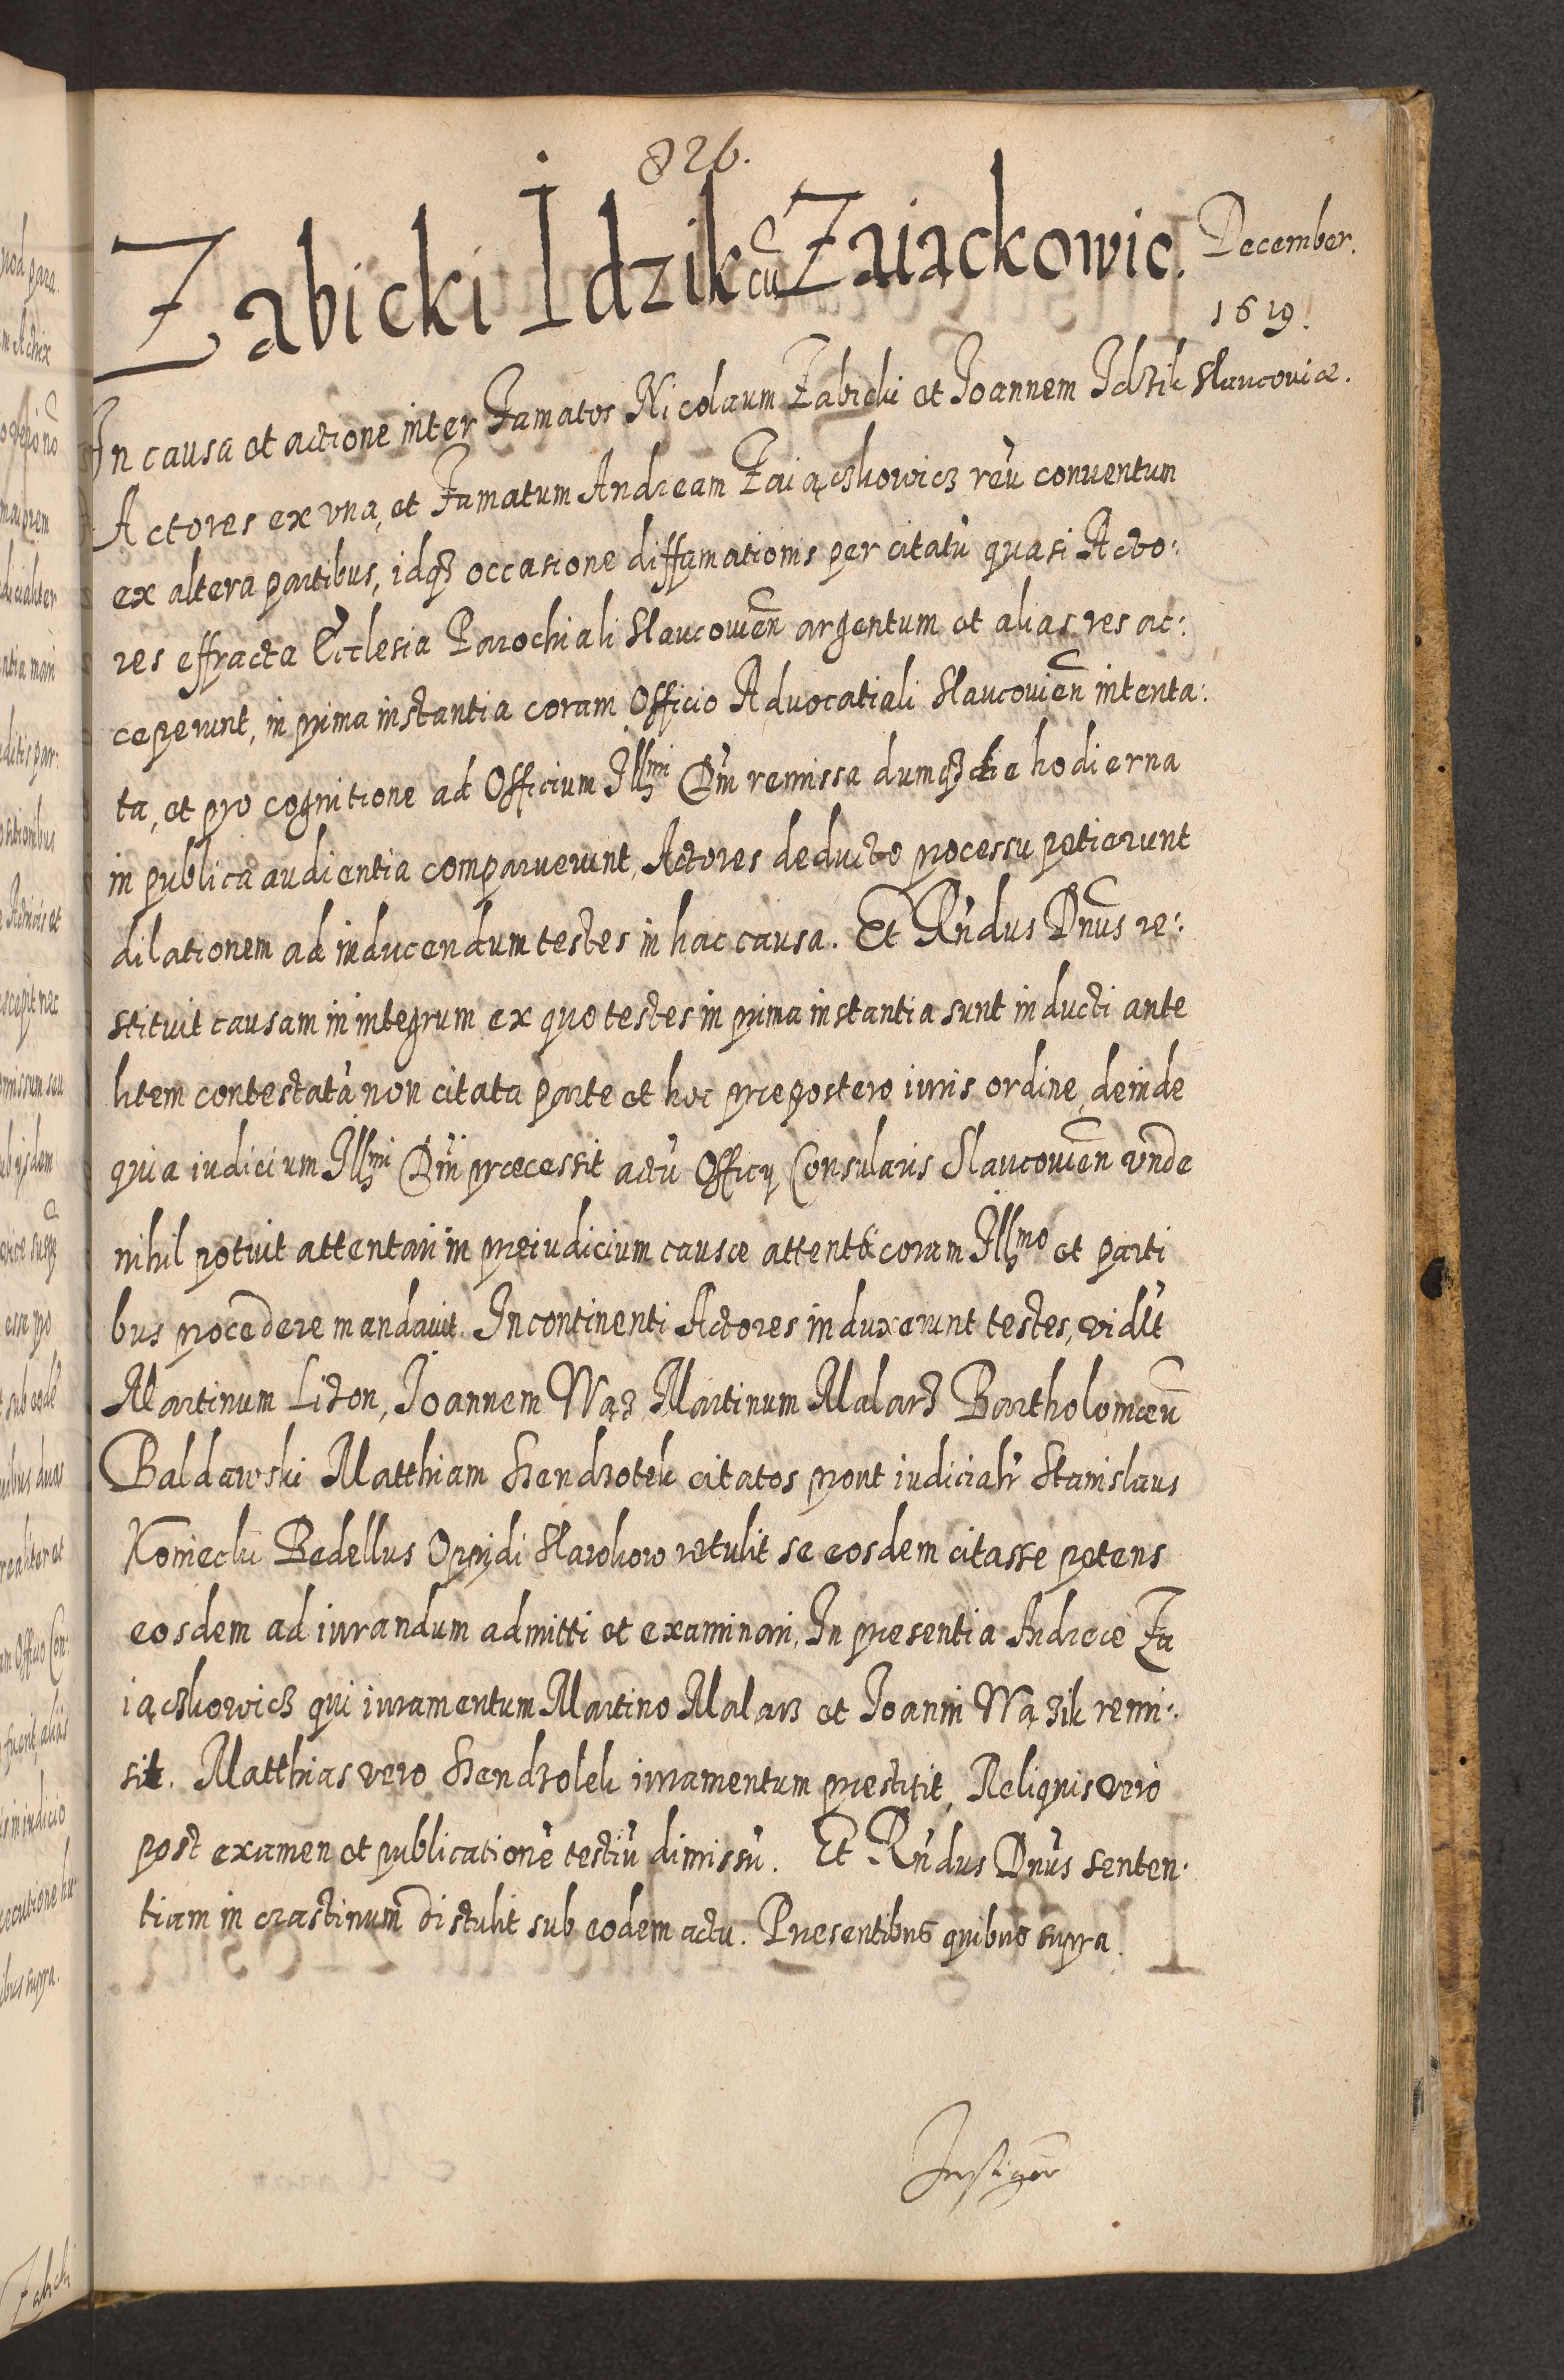 826.
Zabicki Idzik cũ Zaiąckowic.
December.
1619.
Slaucoviæ.
In causa et actione inter Famatos Nicolaum Zabicki et Joannem Idzik
Actores ex vna, et Famatum Andream Zaiączkowicz reũ conuentum
ex altera partibus, idqȝ occasione diffamationis per citatũ quasi Acto:
res effracta Ecclesia Parochiali Slaucouien̄ argentum et alias res ac:
ceperunt, in prima instantia coram Officio Aduocatiali Slaucouien̄ intenta:
ta, et pro cognitione ad Officium Illmi Dñi remissa dumqȝ die hodierna
in publica audientia comparuerunt, Actores deducto processu petierunt
dilationem ad inducendum testes in hac causa. Et Rñdus Dñus re:
stituit causam in integrum ex quo testes in prima instantia sunt inducti ante
litem contestatã non citata parte et hoc præpostero iuris ordine, deinde
quia iudicium Illmi Dñi præcessit actũ Officij Consularis Slaucouien̄ vnde
nihil potuit attentari in præiudicium causæ attentæ coram Illmo et parti
bus procedere mandauit. Incontinenti Actores induxerunt testes, vidlt
Martinum Lizon, Joannem Wąz Martinum Malarz Bartholomæũ
Baldawski Matthiam Szendzolek citatos prout iudicialr Stanislaus
Koniecki Bedellus Oppidi Slawkow retulit se eosdem citasse petens
eosdem ad iurandum admitti et examinari, In præsentia Andreæ Za
iączkowicz qui iuramentum Martino Malarz et Joanni Wązik remi:
sit. Matthias vero Szendzolek iuramentum præstitit, Reliquis vero
post examen et publicationẽ testiũ dimissũ. Et Rñdus Dñus senten:
tiam in crastinum distulit sub eodem actu. Præsentibus quibus supra.
Instigator